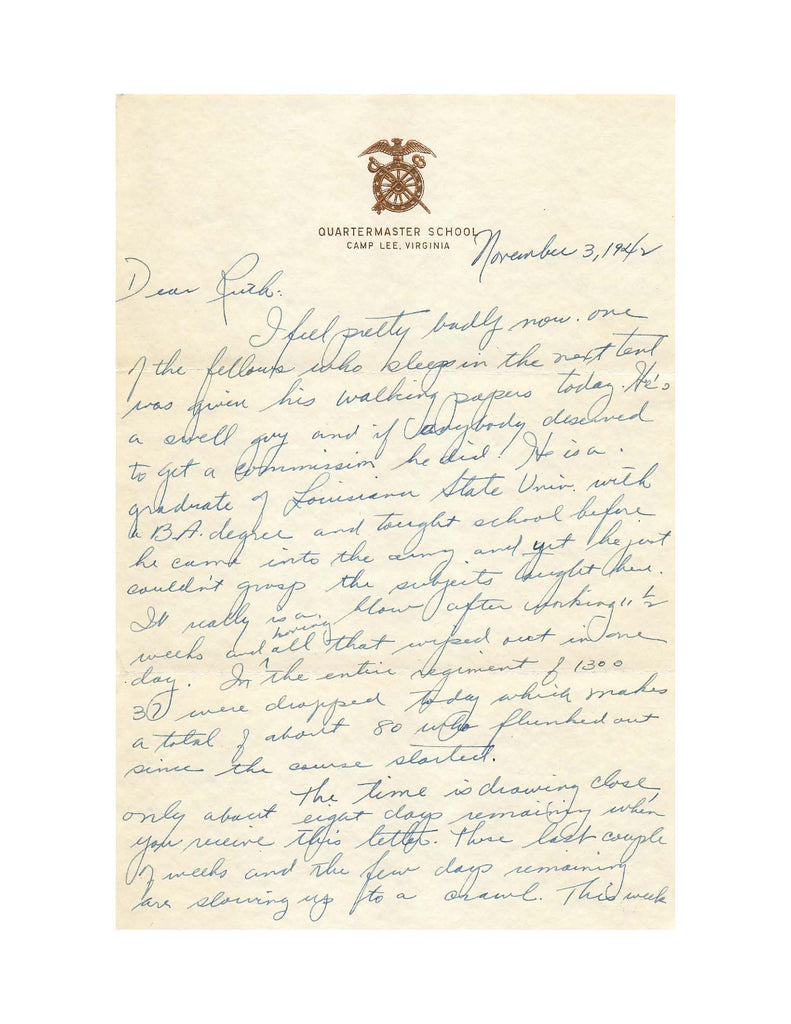 QUARTERMASTER SCHOOL
CAMP LEE, VIRGINIA
November 3, 1942
Dear Ruth:
I feel pretty badly now. one
of the fellows who sleeps in the next tent
was given his walking papers today. He's
a swell guy and if anybody deserved
to get a commission he did! He is a
graduate of Louisiana State Univ. with
a B.A. degree and taught school before
he came into the army and yet he just
couldn't grasp the subjects taught here.
It really is a blow after working 11 1/2
weeks and having all that wiped out in one
day. In the entire regiment of 1300
37 were dropped today which makes
a total of about 80 who flunked out
since the course started.
The time is drawing close,
only about eight days remaining when
you receive this letter. These last couple
of weeks and the few days remaining
are slowing up to a crawl. This week